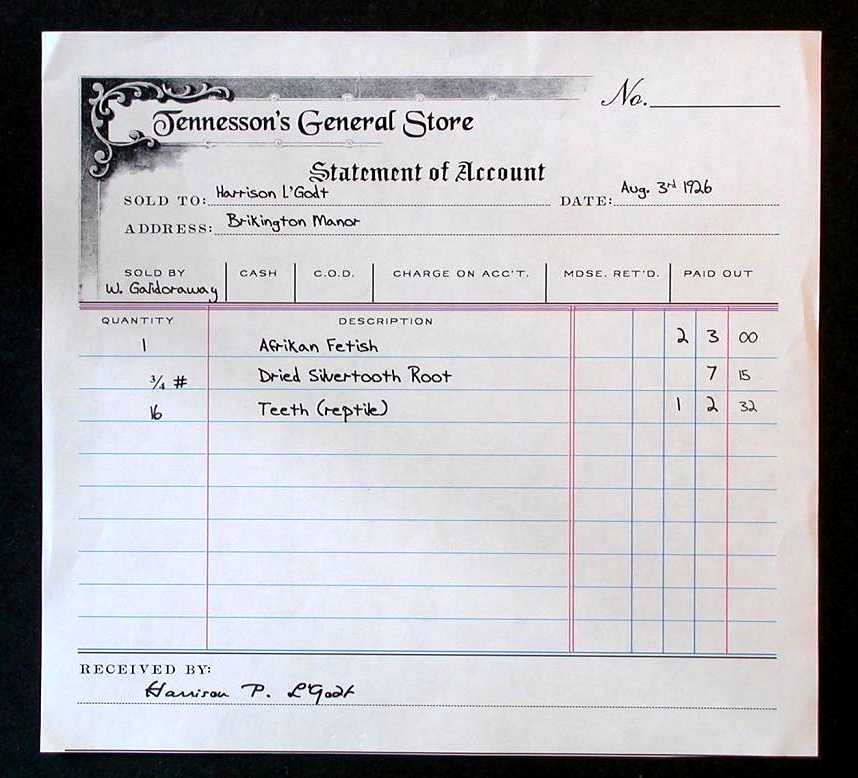 No.
Tennesson's General Store
Statement of Account
SOLD TO: Harrison L'Godt DATE: Aug. 3rd 1926
ADDRESS: Brikington Manor
SOLD BY CASH C.O.D. CHARGE ON ACC'T. MDSE. RET'D. PAID OUT
W. Galdoraway
QUANTITY DESCRIPTION
1 Afrikan Fetish 23 00
3/4 # Dried Silvertooth Root 7 15
16 Teeth (reptile) 12 32
RECEIVED BY:
Harrison P. L'Godt